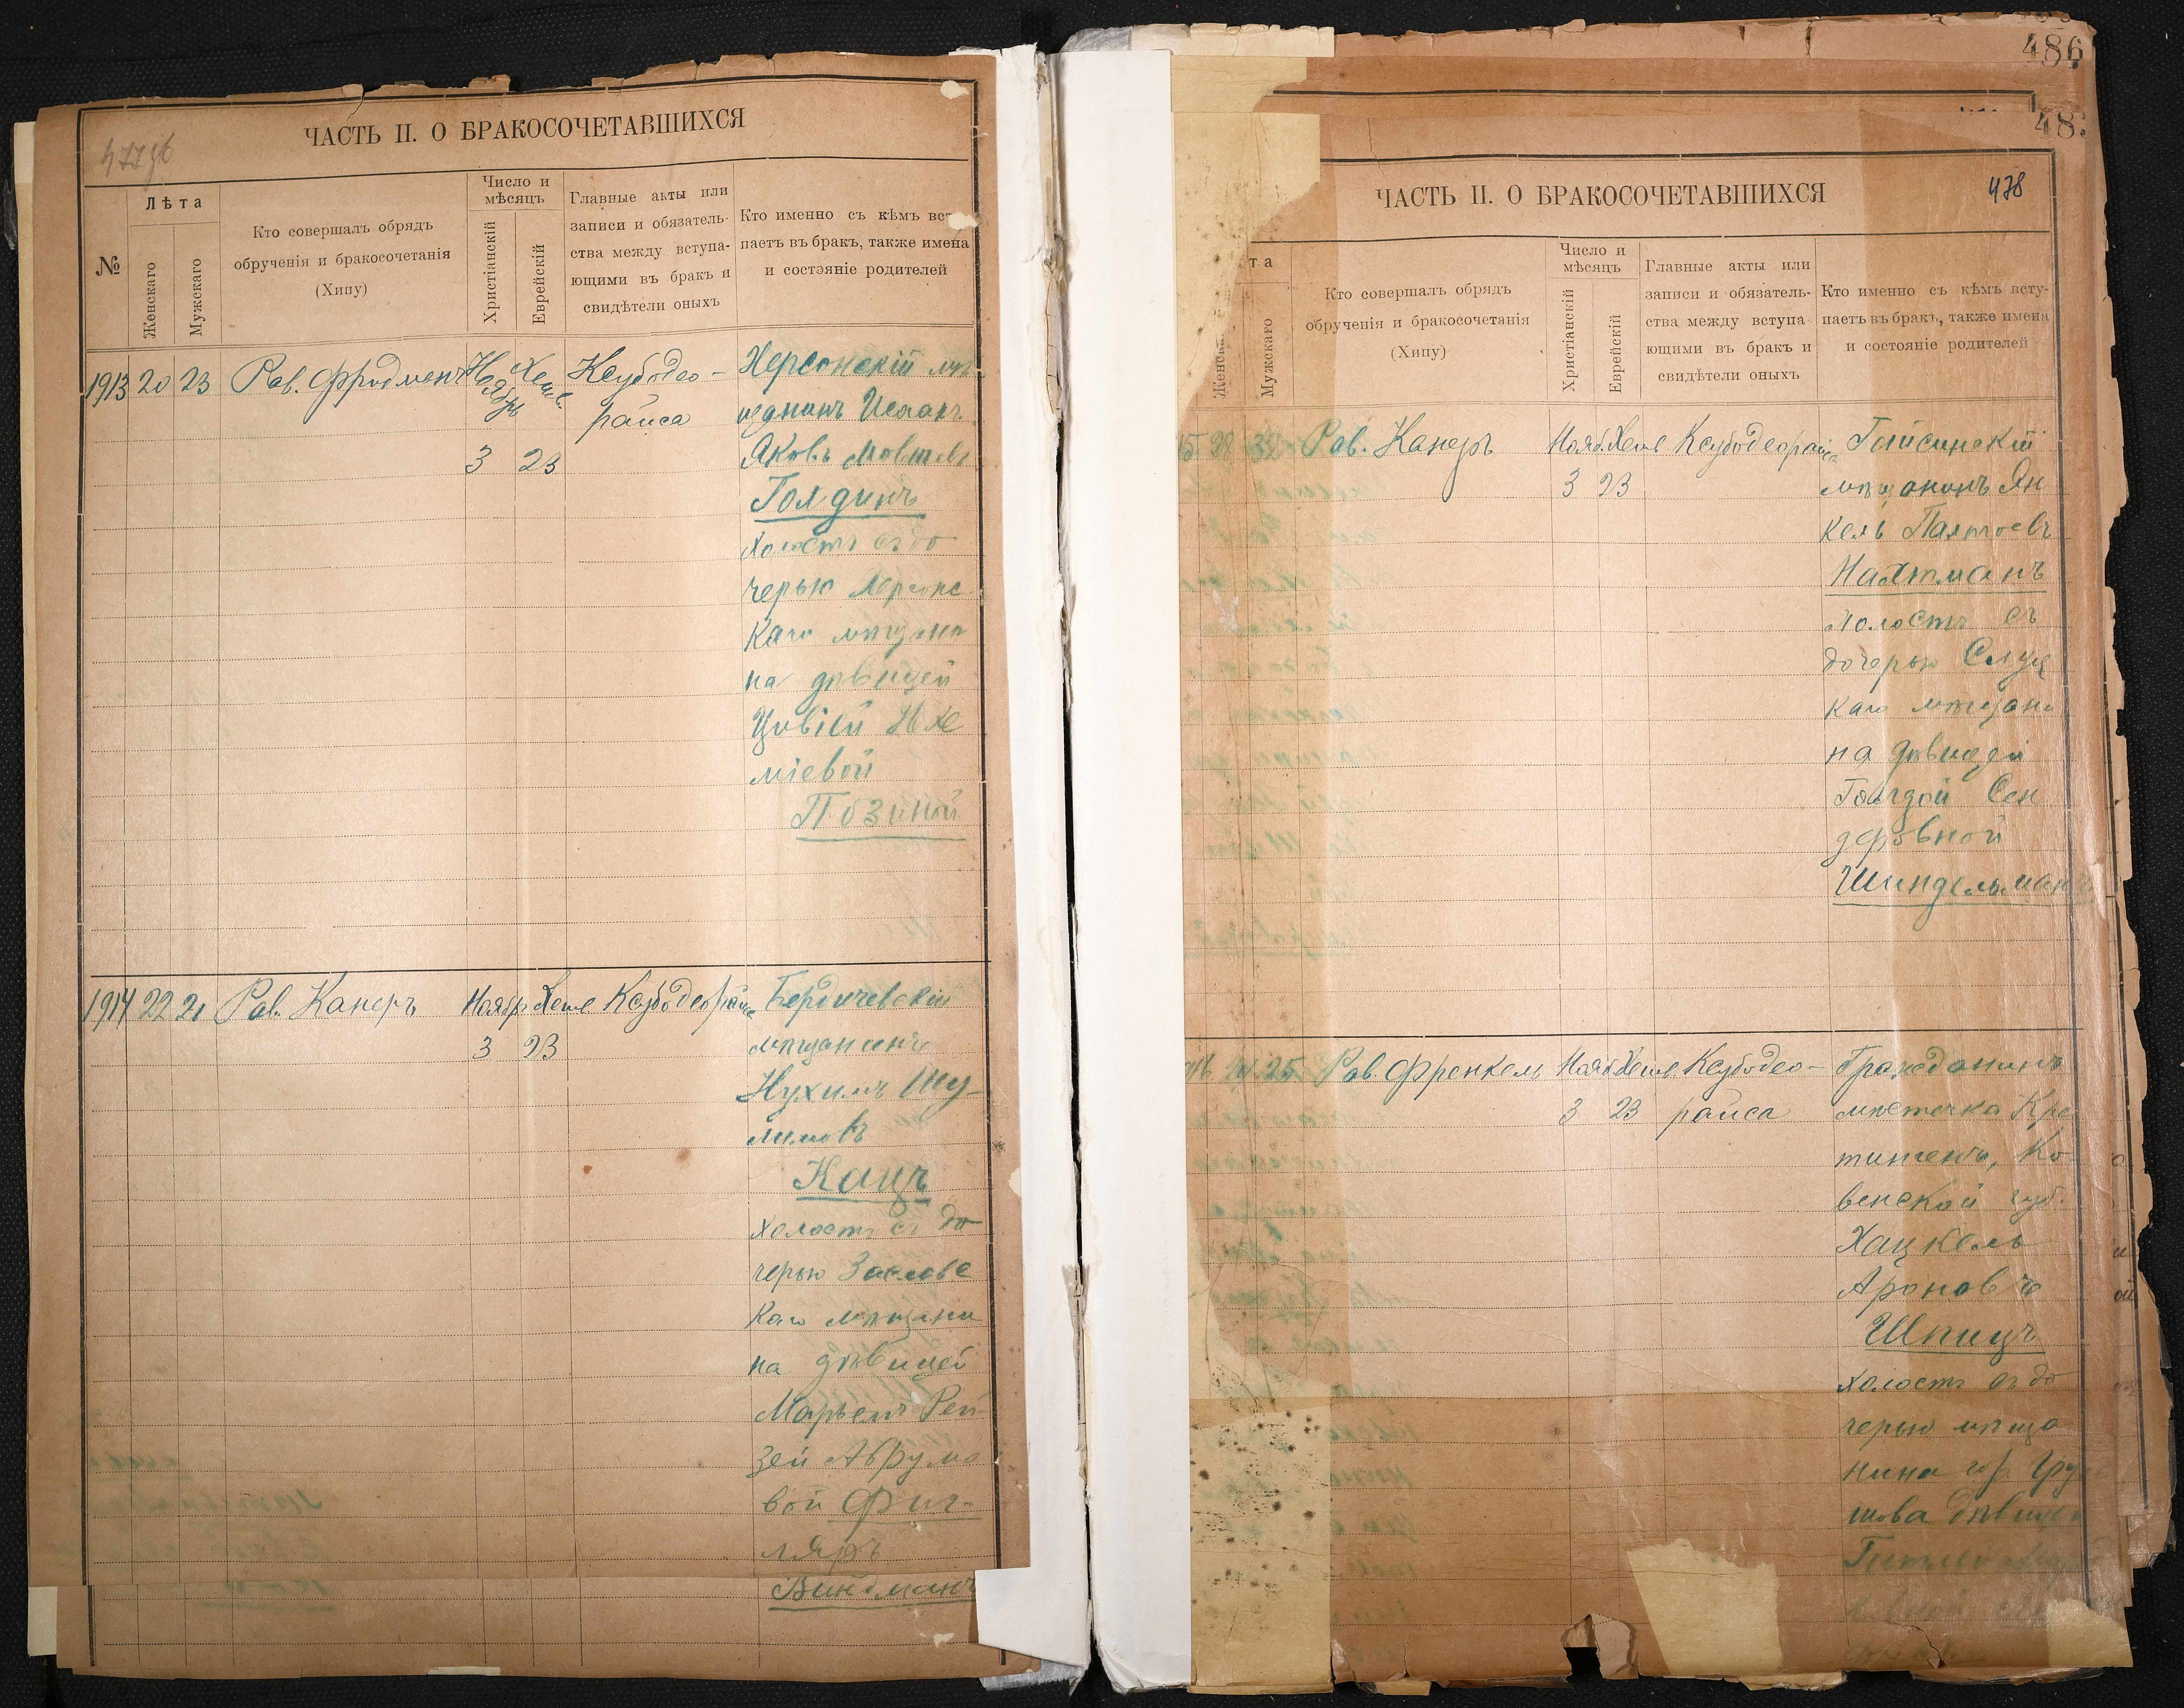 477об
ЧАСТЬ II. О БРАКОСОЧЕТАВШИХСЯ
№
Лѣта
Женскаго
Мужскаго
Кто совершалъ обрядъ
обрученія и бракосочетанія
(Хипу)
Число и
мѣсяцъ
Христіанскій
Еврейскій
Главные акты или
записи и обязатель-
ства между вступа-
ющими въ бракъ и
свидѣтели оныхъ
Кто именно съ кѣмъ вст
паетъ въ бракъ, также имена
и состояніе родителей
1913 20 23 Рав. Фридманъ Ноябрь Хешв. Ксубодео-
райса
3 23
Херсонскій мѣ
щанинъ Исаакъ
Яковъ Мовшевъ
Голдинъ
холостъ съ до
черью Херсонс
каго мѣщани
на дѣвицей
Цивіей Нхе
міевой
Позиной
1914 22 21 Рав. Канеръ Ноябр Хешв Ксубодеорайса
3 23
Бердичевскій
мѣщанинъ
Нухимъ Шу-
лимовъ
Кацъ
холостъ съ до
черью Заславс
каго мѣщани
на дѣвицей
Марьемъ Рей
зей Абрумо
вой Фич-
ляръ
Виндманъ
486
48
478
ЧАСТЬ II. О БРАКОСОЧЕТАВШИХСЯ
та
Женска
Мужскаго
Кто совершалъ обрядъ
обрученія и бракосочетанія
(Хипу)
Число и
мѣсяцъ
Христіанскій
Еврейскій
Главные акты или
записи и обязатель-
ства между вступа
ющими въ бракъ и
свидѣтели оныхъ
Кто именно съ кѣмъ всту-
паетъ въ бракъ, также имена
и состояніе родителей
15 28 32 Рав. Канеръ Нояб. Хешв Ксубодеорайса
3 23
Гайсинскій
мѣщанинъ Ян
кель Палтоевъ
Нахтманъ
холостъ съ
дочерью Слуц
каго мѣщани
на дѣвицей
Голдой Сен
деровной
Шиндельманъ
25 Рав. Френкель Нояб Хешв. Ксубодео-
3 23 райса
Гражданинъ
мѣстечка Кре
тингенъ, Ко-
венской губ.
Хацкель
Ароновъ
Шпицъ
холостъ съ до
черью мѣща
нина гор.
шова дѣвицей
Гитлей